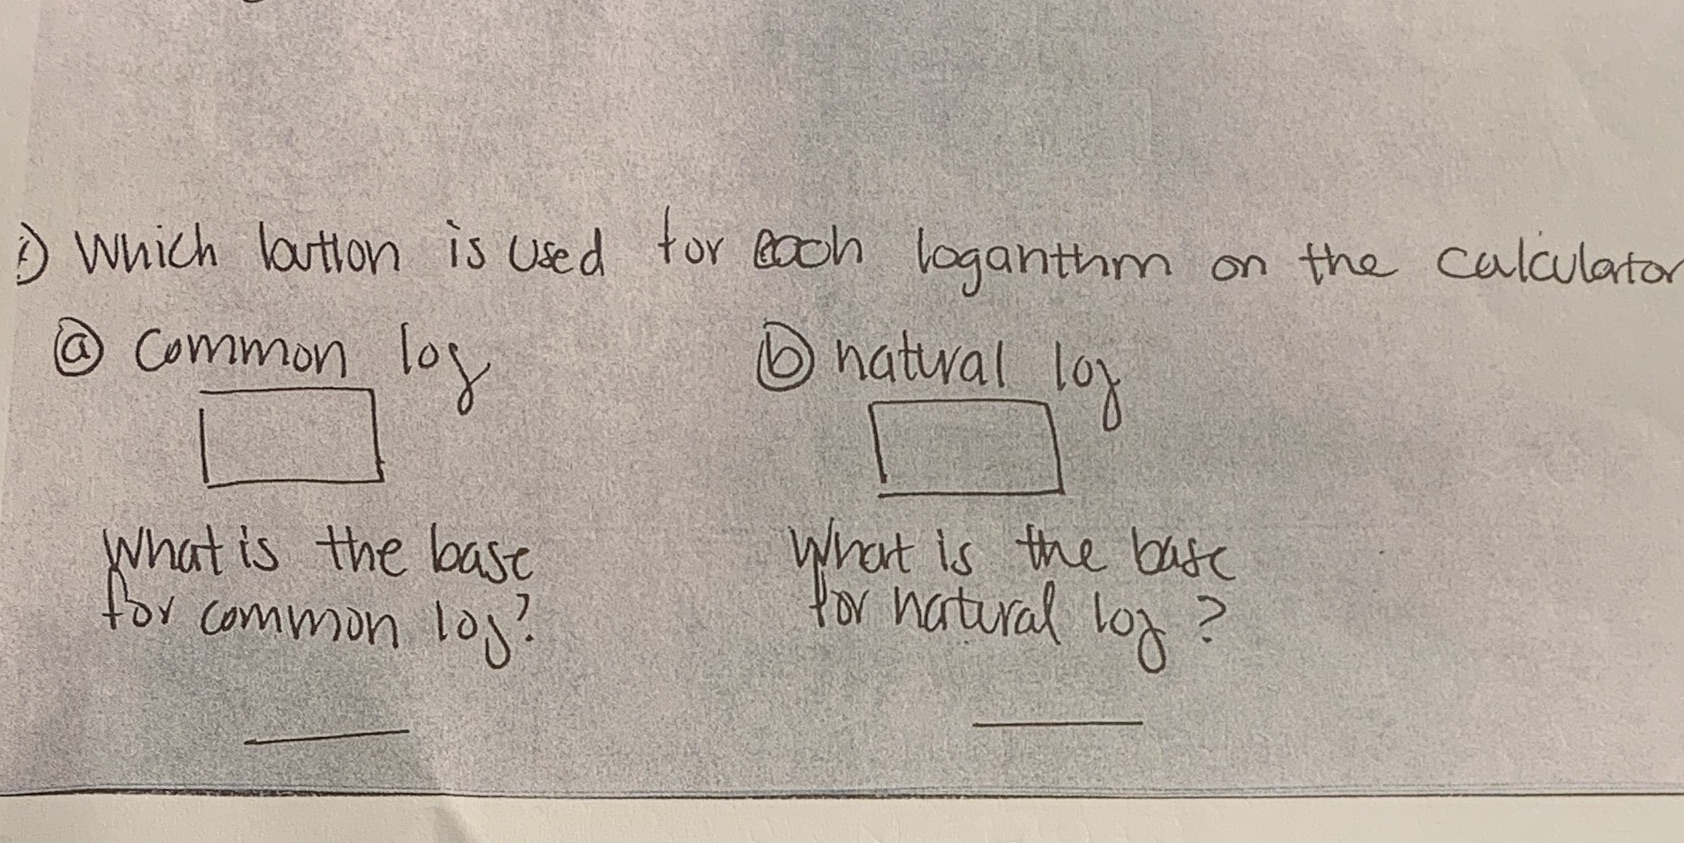 i) Which button is used for each logarithm on the calculator
ⓐ common log ⓑ natural log
What is the base What is the base
for common log? for natural log?